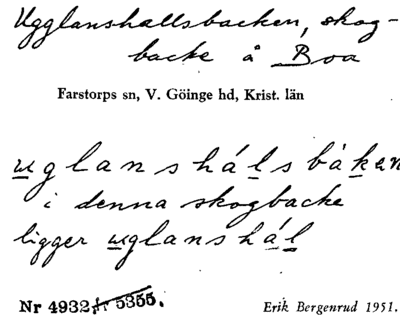 Ugglanshallsbacken, skog-
backe å Boa
Farstorps sn, V. Göinge hd, Krist. län
uglanshálsbákan
i denna skogbacke
ligger uglanshál
Nr 4932, fr 5355.
Erik Bergenrud 1951.